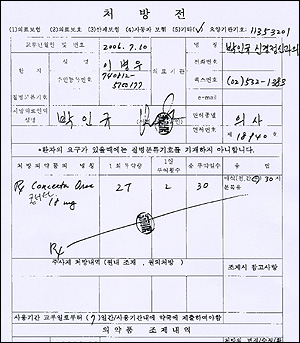 처 방 전
(1)의료보험 (2)의료보호 (3)산재보험 (4)자동차 보험 (5)기타(✓) 요양기관기호: 11353201
교부년월일 및 번호 2006. 7. 10
명 칭
환 자
성 명 이
주민등록번호
의 료 기 관
전화번호
팩스번호 (02)532-1383
e-mail
질병분류기호
처방의료인의 성명 박 인 규
면허종별 의 사
면허번호 제 18140 호
*환자의 요구가 있을때에는 질병분류기호를 기재하지 아니합니다.
처 방 의 약 품 의 명 칭
1회 투약량
1일 투여횟수
총 투약일수
용 법
Rx Concerta
18 mg
2T
2
30
30 시
분복용
주사제 처방내역 (원내 조제 , 원외처방 )
조제시 참고사항
사용기간 교부일로부터 (7) 일간/사용기간내에 약국에 제출하여야함
의 약 품 조 제 내 역